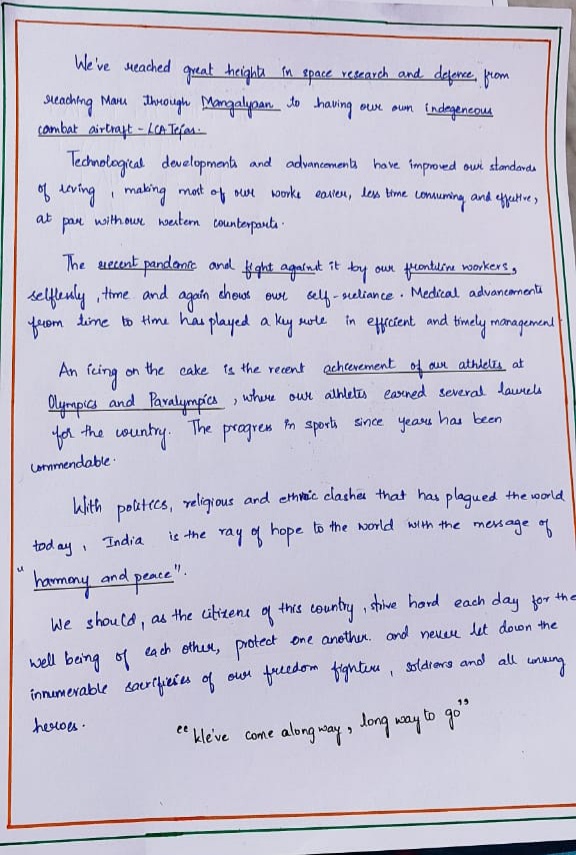 We've reached great heights in space research and defence, from
reaching Mars through Mangalyaan to having our own indegeneous
combat airtraft - LCA Tejas.
Technological developments and advancements have improved our standards
of living, making most of our works easier, less time consuming and effective,
at par with our western counterparts.
The recent pandemic and fight against it by our frontline workers,
selflessly, time and again shows our self-reliance. Medical advancements
from time to time has played a key role in efficient and timely management
An icing on the cake is the recent achievement of our athletes at
Olympics and Paralympics, where our athletes earned several laurels
for the country. The progress in sports since years has been
commendable.
With politics, religious and ethnic clashes that has plagued the world
today, India is the ray of hope to the world with the message of
"harmony and peace".
We should, as the citizens of this country, strive hard each day for the
well being of each other, protect one another. and never let down the
innumerable sacrifieies of our freedom fighters, soldiers and all unsung
heroes.
"We've come along way, long way to go"